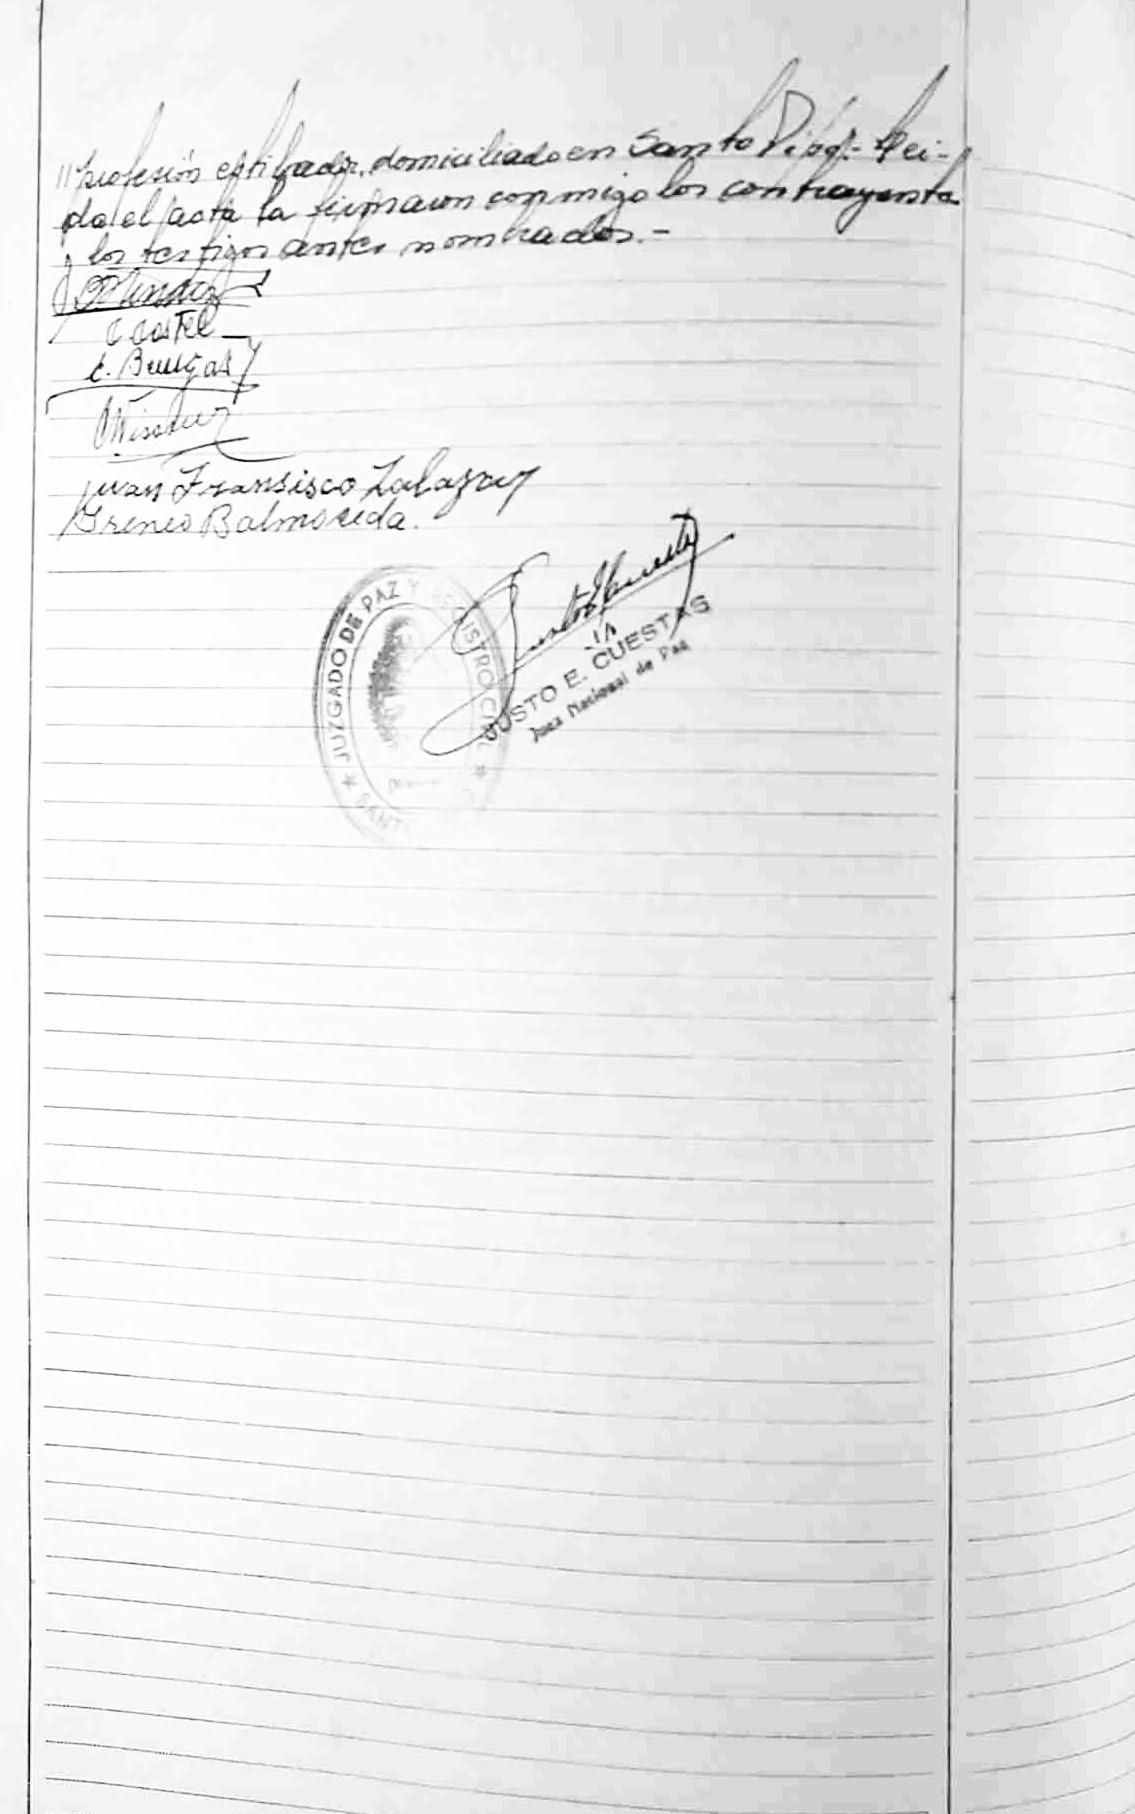 " profesión estibador, domiciliado en Santo Pipó.- Lei-
da el acta la firmaron conmigo los contrayentes
los testigos antes nombrados.-
C. Bengas
Juan Fransisco Zalazar
Ireneo Balmoceda.
JUZGADO DE PAZ Y REGISTRO CIVIL
SANT
JUSTO E. CUESTAS
Juez Nacional de Paz